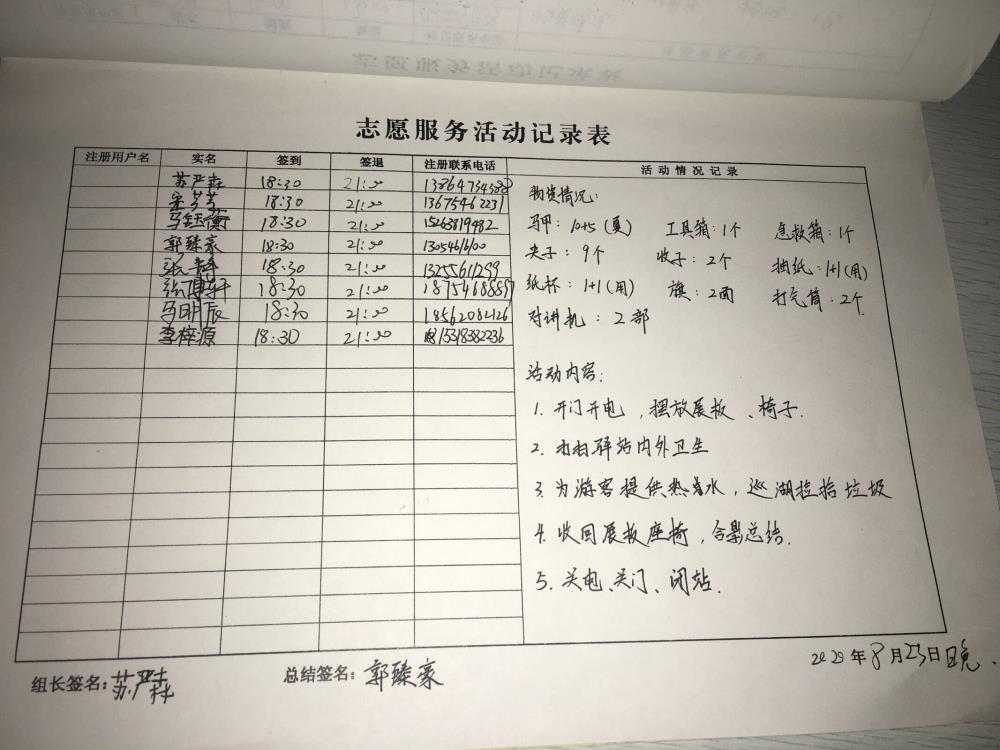 志愿服务活动记录表
注册用户名 实名 签到 签退 注册联系电话 活动情况记录
苏严森 18:30 21:00 13864734388
宋芳芳 18:30 21:00 13675462231
马钰衡 18:30 21:00 15263819482
郭臻豪 18:30 21:00 13054616100
张 18:30 21:00 13255611299
张博轩 18:30 21:00 18754688897
马明辰 18:30 21:00 18562082126
李梓源 18:30 21:00 15318382236
物资情况:
马甲: 10+5 (夏) 工具箱: 1个 急救箱: 1个
夹子: 9个 收子: 2个 抽纸: 1+1(用)
纸杯: 1+1(用) 旗: 2面 打气筒: 2个.
对讲机: 2部
活动内容:
1. 开门开电,摆放展板、椅子.
2. 打扫驿站内外卫生
3. 为游客提供热水,巡湖捡拾垃圾
4. 收回展板座椅,合影总结.
5. 关电、关门、闭站.
组长签名: 苏严森 总结签名: 郭臻豪
2020年8月23日晚.